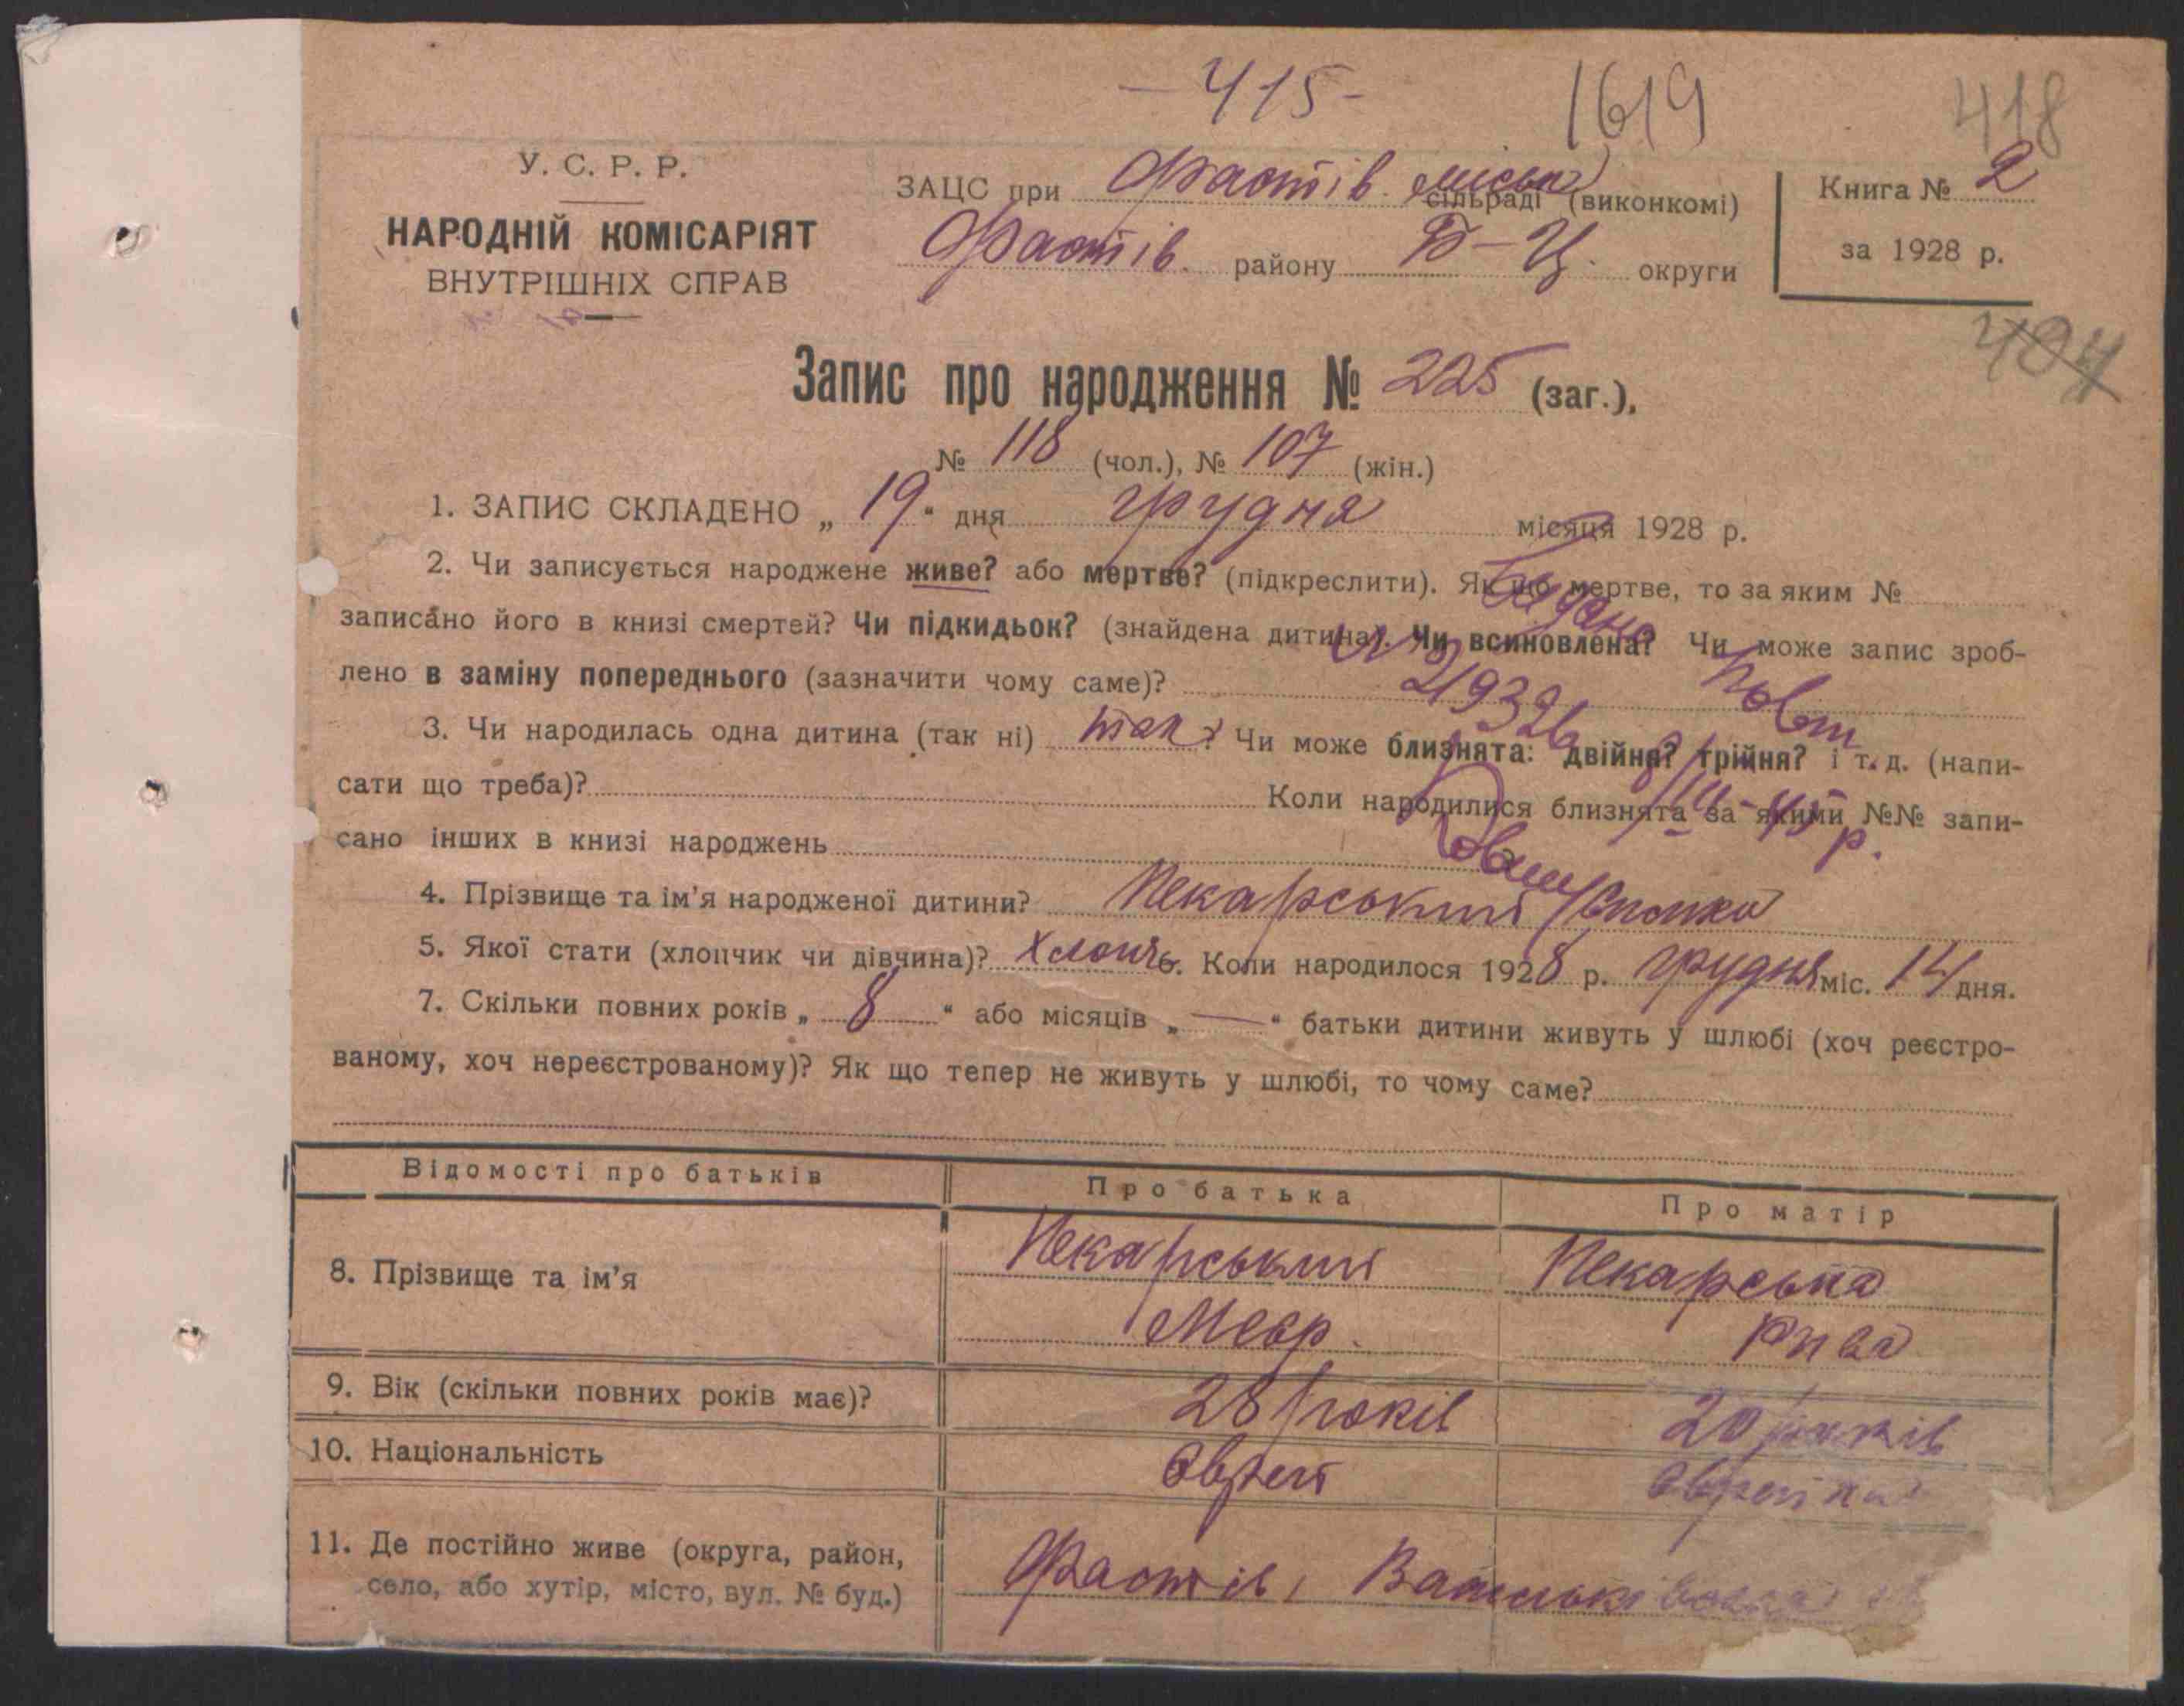 - 415 -
1619
418
У. С. Р. Р.
НАРОДНІЙ КОМІСАРІЯТ
ВНУТРІШНІХ СПРАВ
ЗАЦС при Фастів. міськ сільраді (виконкомі)
Фастів. району Б-Ц. округи
Книга № 2
за 1928 р.
404
Запис про народження № 225 (заг.),
№ 118 (чол.), № 107 (жін.)
1. ЗАПИС СКЛАДЕНО „ 19 “ дня грудня місяця 1928 р.
2. Чи записується народжене живе? або мертве? (підкреслити). Як що мертве, то за яким №
записано його в книзі смертей? Чи підкидьок? (знайдена дитина). Чи всиновлена? Чи може запис зроб-
лено в заміну попереднього (зазначити чому саме)?
Видано
Повт
3. Чи народилась одна дитина (так ні) так ? Чи може близнята: двійня? трійня? і т. д. (напи-
сати що треба)? Коли народилися близнята за якими №№ запи-
сано інших в книзі народжень
4. Прізвище та ім’я народженої дитини? Пекарський
5. Якої стати (хлопчик чи дівчина)? Хлопч. Коли народилося 1928 р. грудня міс. 14 дня.
7. Скільки повних років „ 8 “ або місяців „ — “ батьки дитини живуть у шлюбі (хоч реєстро-
ваному, хоч нереєстрованому)? Як що тепер не живуть у шлюбі, то чому саме?
Відомості про батьків Про батька Про матір
8. Прізвище та ім’я Пекарський Пекарська
Меєр. Рива
9. Вік (скільки повних років має)? 28 років 20 років
10. Національність Єврей Єврейка
11. Де постійно живе (округа, район,
село, або хутір, місто, вул. № буд.)
Фастів,